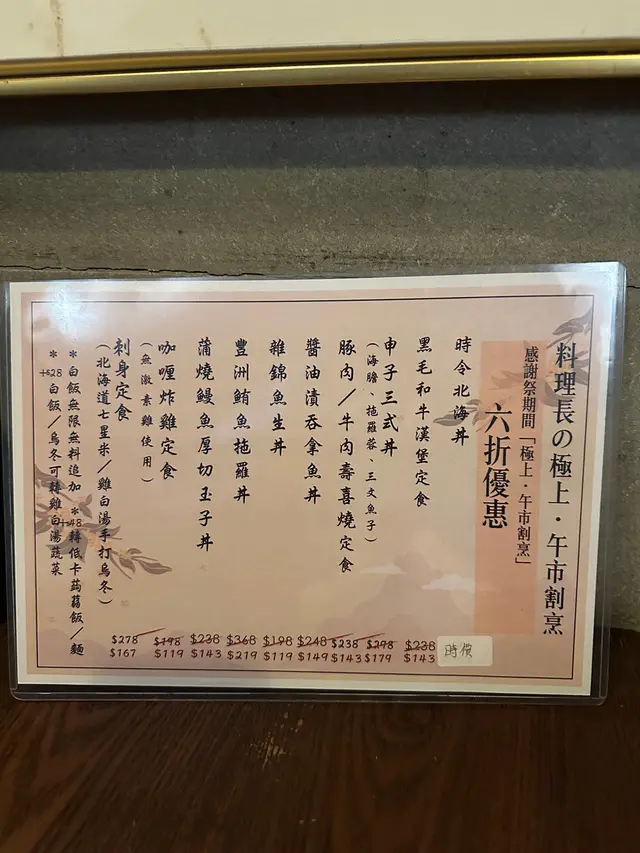 料理長の極上・午市割烹
感謝祭期間「極上・午市割烹」
六折優惠
時令北海丼
時價
黑毛和牛漢堡定食
$238
$143
申子三式丼
(海膽、拖羅蓉、三文魚子)
$298
$179
豚肉/牛肉壽喜燒定食
$238
$143
醬油漬吞拿魚丼
$248
$149
雜錦魚生丼
$198
$119
豐洲鮪魚拖羅丼
$368
$219
蒲燒鰻魚厚切玉子丼
$238
$143
咖喱炸雞定食
(無激素雞使用)
$198
$119
刺身定食
(北海道七星米/雞白湯手打烏冬)
$278
$167
*白飯無限無料追加 *+$48轉低卡蒟蒻飯/麵
*+$28白飯/烏冬可轉雞白湯蔬菜